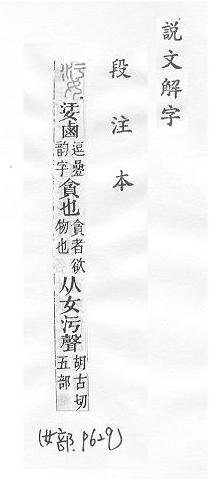 説文解字
段注本
鹵逗曡韵字貪也貪者欲物也从女污聲胡古切五部
(女部, P629)